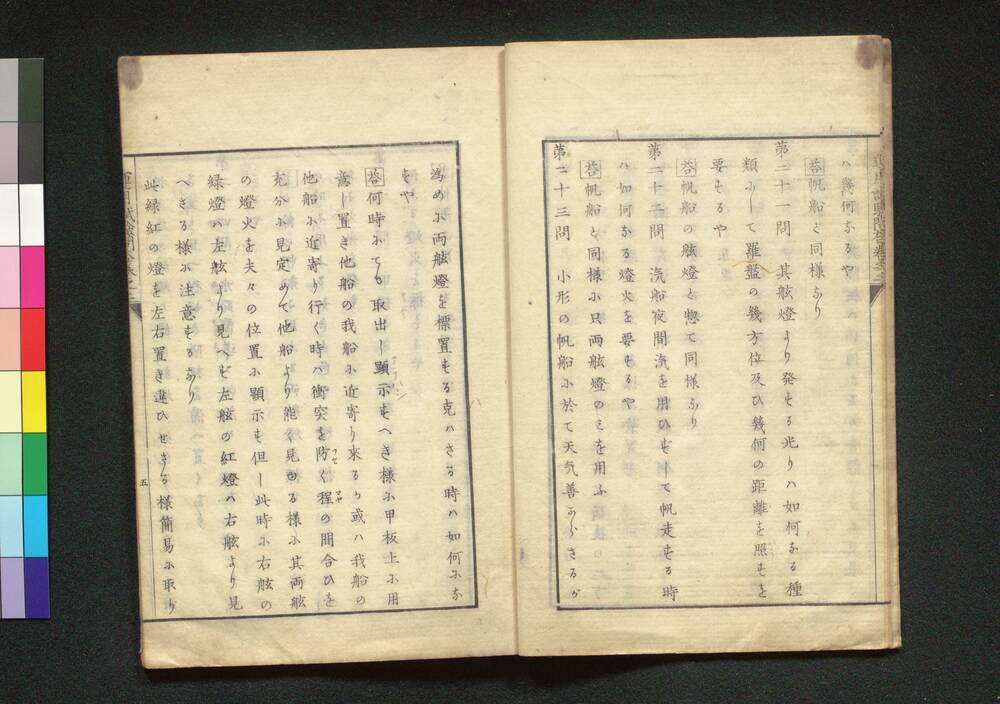 ハ幾何なるや
答 帆船と同様なり
第二十一問 其舷燈より発する光りハ如何なる種
類にして羅盤の幾方位及ひ幾何の距離を照すを
要するや
答 帆船の舷燈と惣て同様なり
第二十二問 汽船夜間汽を用ひずして帆走する時
ハ如何なる燈火を要するや
答 帆船と同様に只両舷燈のミを用ふ
第二十三問 小形の帆船に於て天気善からさるが
為めに両舷燈を標置する克ハさる時ハ如何にな
すや
答 何時にても取出し顕示すへき様に甲板上に用
意し置き他船の我船に近寄り来るか或ハ我船の
他船に近寄り行く時ハ衝突を防く程の間合ひを
充分に見定めて他船より能く見ゆる様に其両舷
の燈火を夫々の位置に顕示す但し此時に右舷の
緑燈ハ左舷より見へず左舷の紅燈ハ右舷より見
へさる様に注意するなり
此緑紅の燈を左右置き違ひせさる様簡易に取り
五